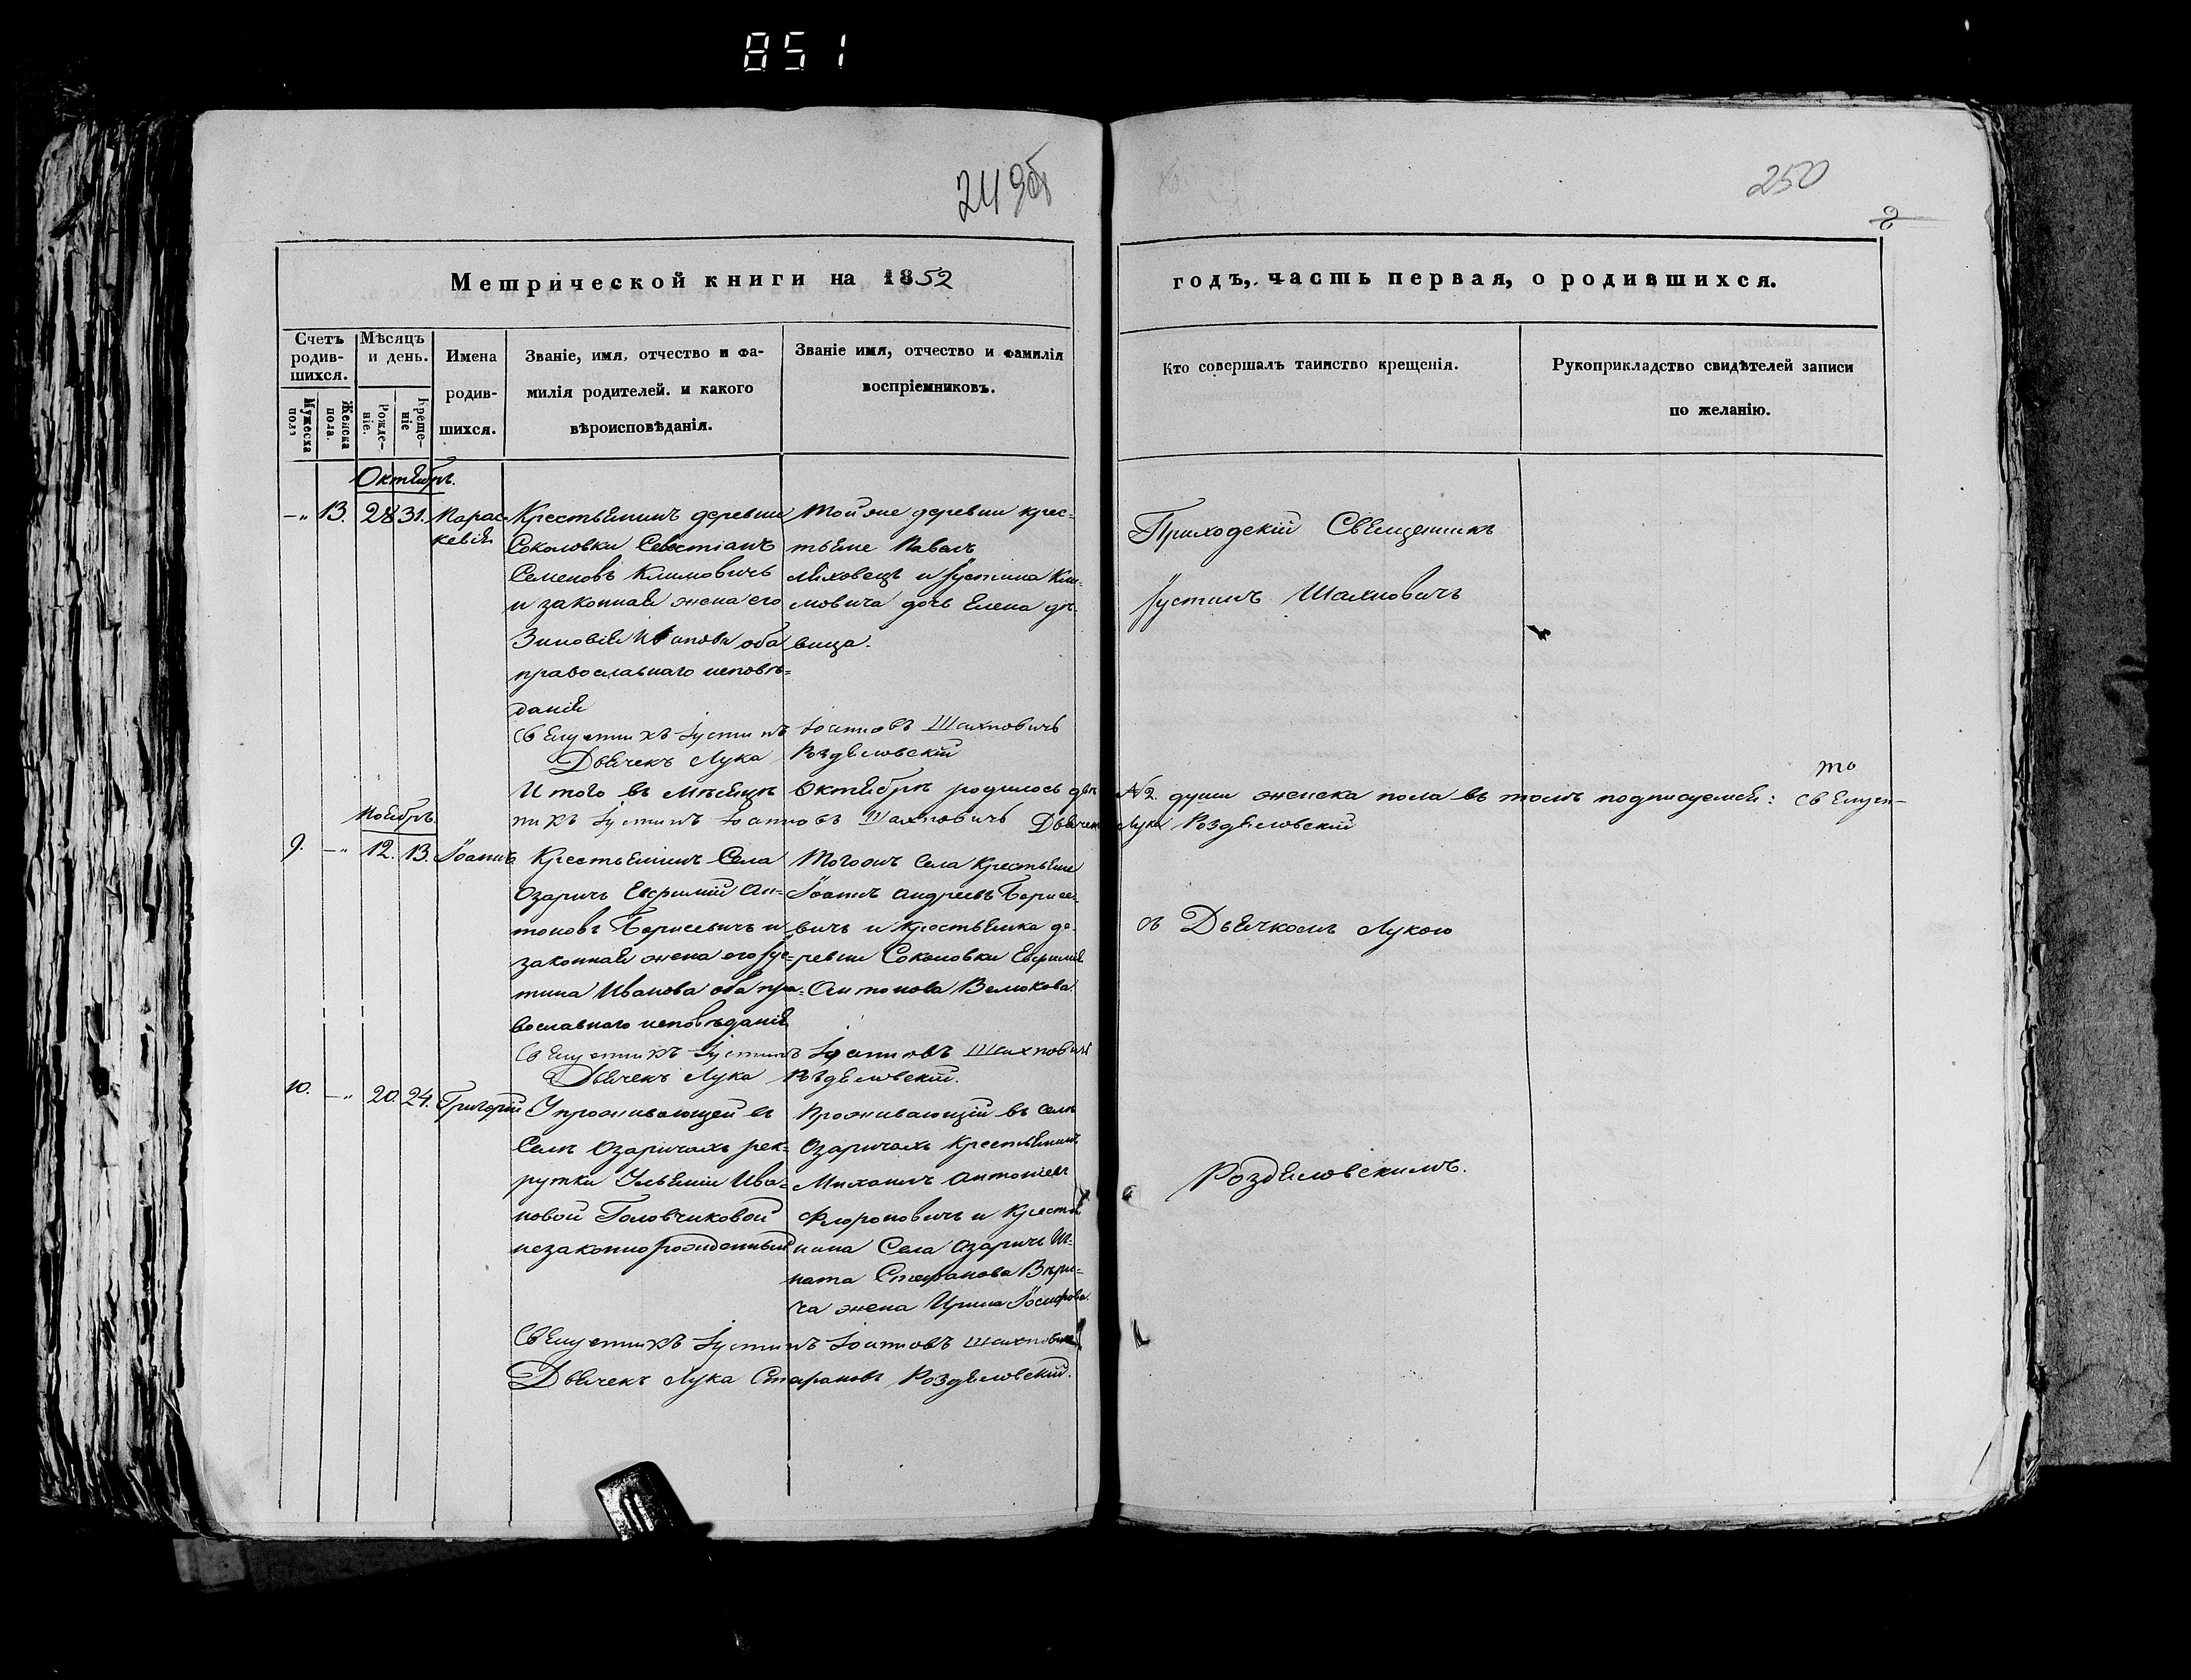 851
249об
250
Метрической книги на 1852
годъ, часть первая, о родившихся.
Счетъ родив-шихся.
Мѣсяцъ и день.
Имена родив-шихся.
Званіе, имя, отчество и фа-
милія родителей. и какого
вѣроисповѣданія.
Званіе имя, отчество и фамилія
воспріемниковъ.
Кто совершалъ таинство крещенія.
Рукоприкладство свидѣтелей записи
по желанію.
Мужеска пола
Женска пола.
Рожде-ніе.
Креще-ніе
Октябрь.
—„ 13. 28 31. Парас-
кевія
Крестьянинъ деревни
Соколовки Севостіанъ
Семеновъ Климовичъ
и законная жена его
Зиновія Иванова оба
православнаго исповѣ=
данія
Той же деревни крес=
тьяне Павелъ
Ляховецъ и Іустина Кли-
мовича дочь Елена дѣ-
вица.
Приходскій Священникъ
Іустинъ Шахновичъ
Священникъ Іустинъ Іоанновъ Шахновичъ
Дьячекъ Лука Роздяловскій
Итого въ Мѣсяцѣ Октябрѣ родилось двѣ № 2. души женска пола въ томъ подписуемся: Священ-
никъ Іустинъ Іоанновъ Шахновичъ Дьячекъ Лука Роздяловскій
Ноябрь.
9. —„ 12. 13. Іоаннъ
Крестьянинъ Села
Озаричъ Евфимій Ан=
тоновъ Борисевичъ и
законная жена его Іус=
тина Иванова оба пра=
вославнаго исповѣданія
Тогожъ Села Крестьяне
Іоаннъ Андреевъ Борисе-
вичъ и Крестьянка де-
ревни Соколовки Евфимія
Антонова Велюкова.
съ Дьячкомъ Лукою
Священникъ Іустинъ Іоанновъ Шахновичъ
Дьячекъ Лука Роздяловскій.
10. —„ 20. 24. Григорій
У проживающей въ
Селѣ Озаричахъ рек=
рутки Ульяніи Ива=
новой Головчиковой
незаконнорожденный
Проживающій въ селѣ
Озаричахъ Крестьянинъ
Михаилъ Антоніевъ
и Крестья
нина Села Озаричъ Иг-
ната Стефанова
ча жена Ирина Іосифова.
Роздяловскимъ.
Священникъ Іустинъ Іоанновъ Шахновичъ
Дьячекъ Лука Стефановъ Роздяловскій.